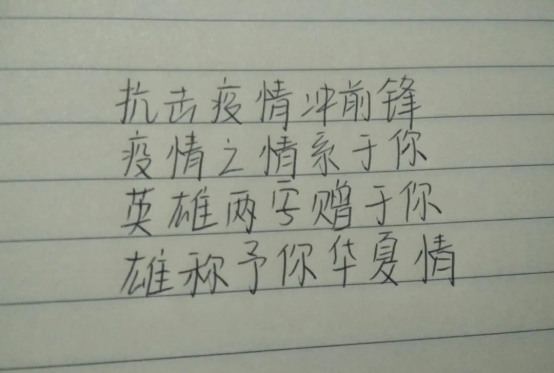 抗击疫情冲前锋
疫情之情系于你
英雄两字赠于你
雄称予你华夏情